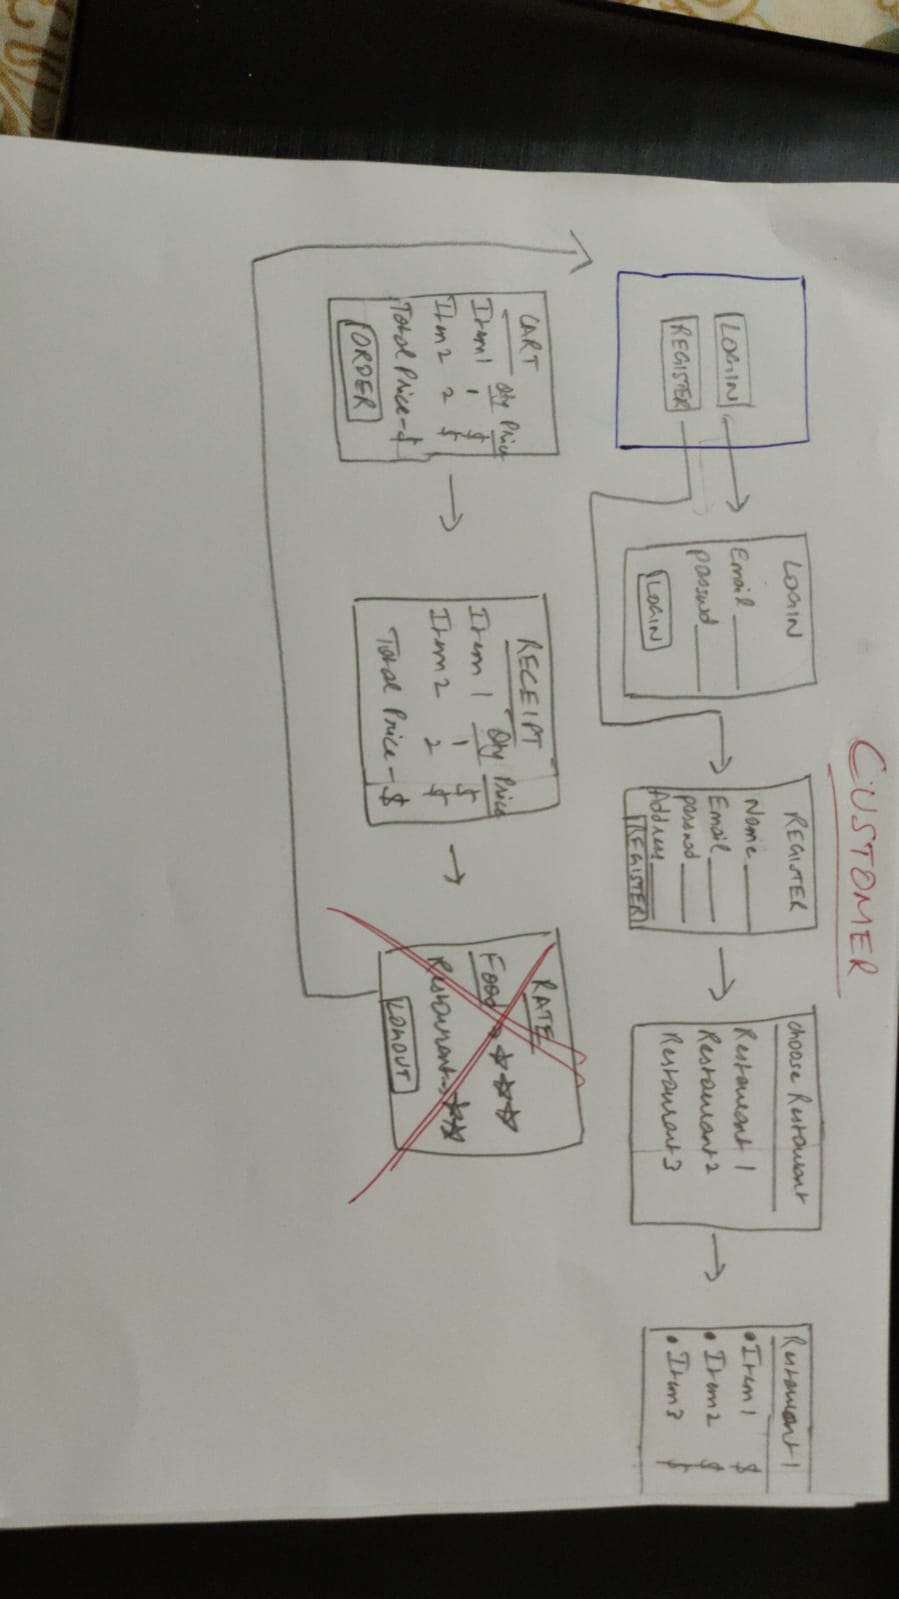 CUSTOMER
LOGIN
REGISTER
LOGIN
Email
passwd
LOGIN
REGISTER
Name
Email
passwd
Address
REGISTER
Choose Restaurant
Restaurant 1
Restaurant 2
Restaurant 3
Restaurant 1
• Item 1 $
• Item 2 $
• Item 3 $
CART
Qty Price
Item 1 1 $
Item 2 2 $
Total Price - $
ORDER
RECEIPT
Qty Price
Item 1 1 $
Item 2 2 $
Total Price - $
RATE
Food
Restaurant
LOHOUT